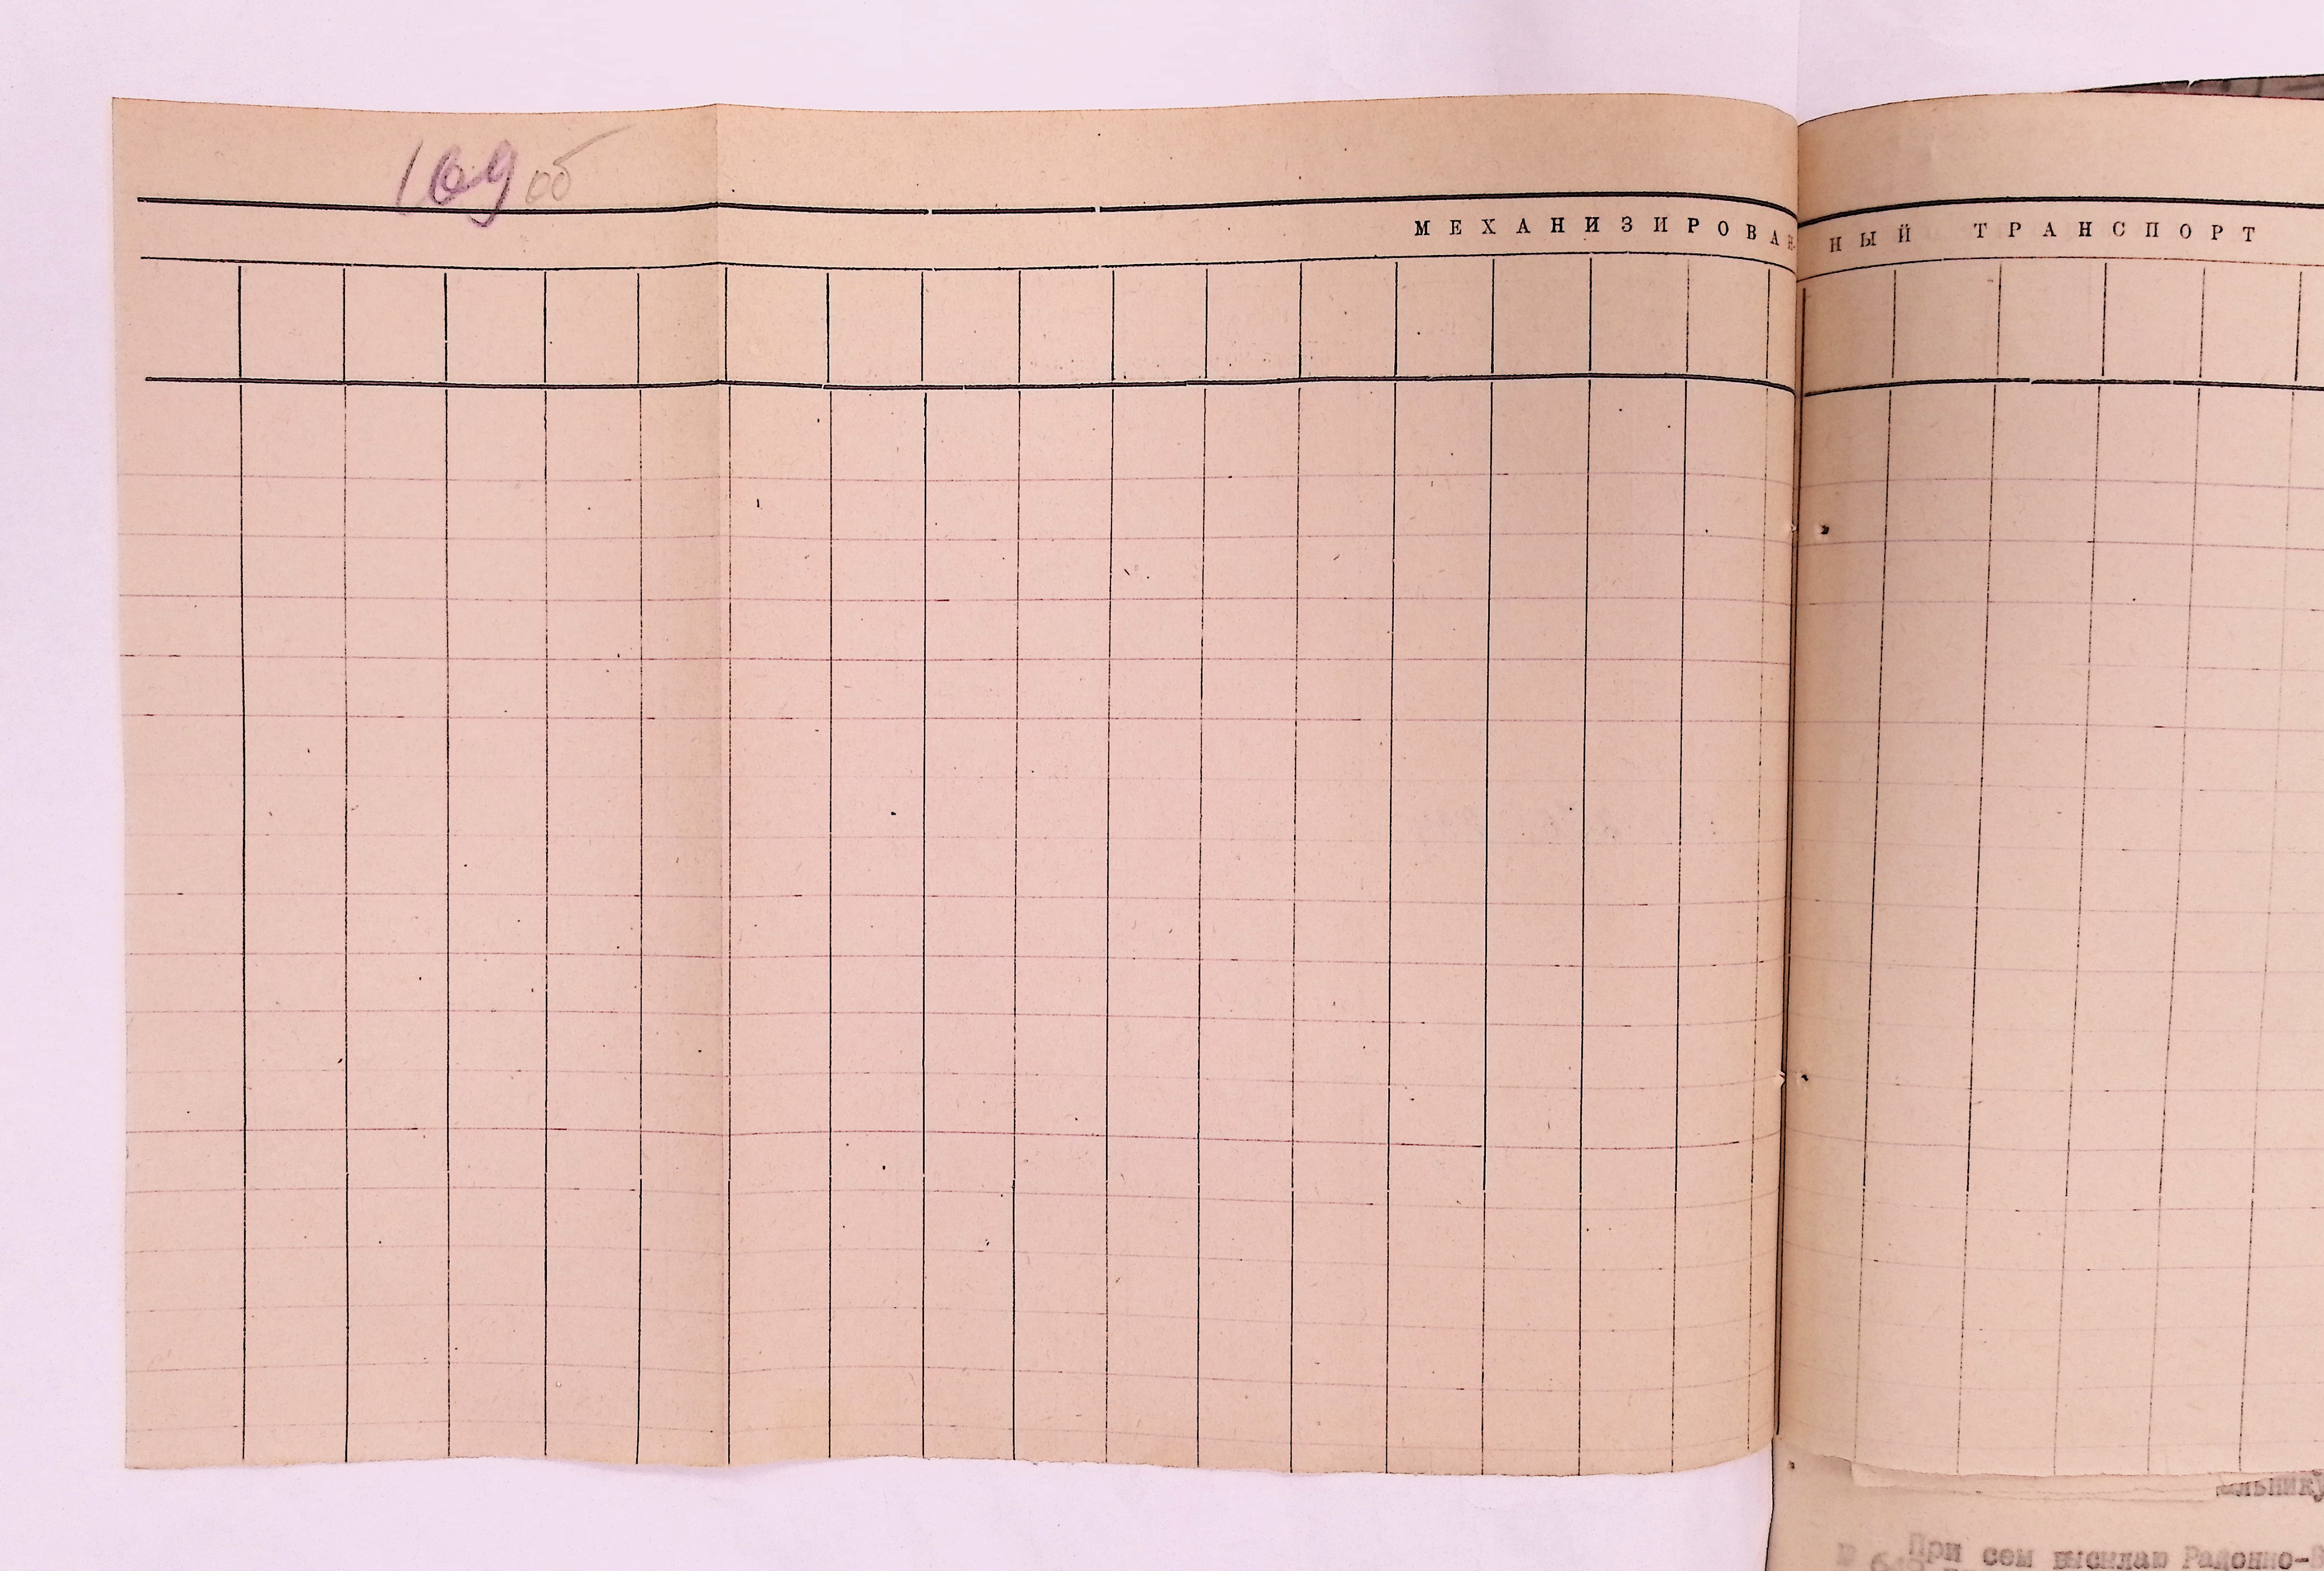 169 об
МЕХАНИЗИРОВАННЫЙ ТРАНСПОРТ
льнику
При сем высылаю